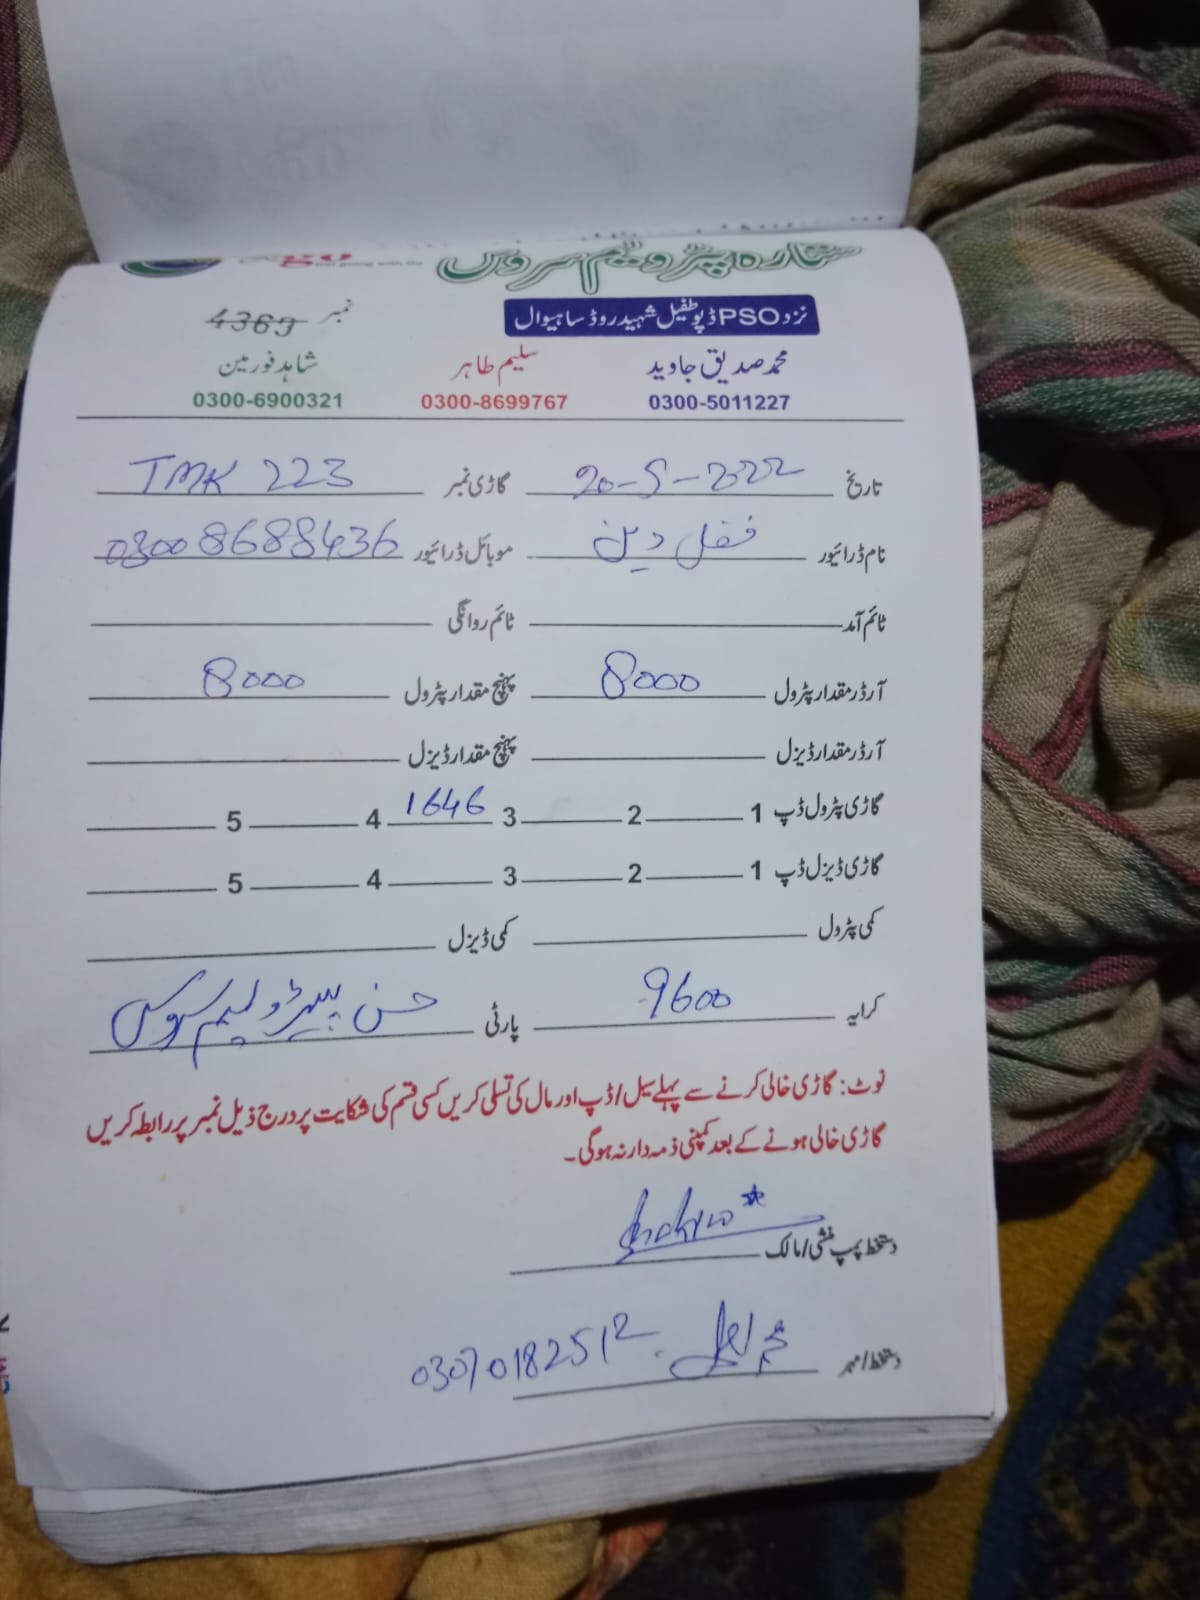 ستارہ پٹرولیم سروس
نزد PSO ڈپو طفیل شہید روڈ ساہیوال
نمبر 4369
محمد صدیق جاوید سلیم طاہر شاہد فورمین
0300-5011227 0300-8699767 0300-6900321
تاریخ 20-5-2022 گاڑی نمبر TMK 223
نام ڈرائیور فضل دین موبائل ڈرائیور 03008688436
ٹائم آمد ٹائم روانگی
آرڈر مقدار پٹرول 8000 پہنچ مقدار پٹرول 8000
آرڈر مقدار ڈیزل پہنچ مقدار ڈیزل
گاڑی پٹرول ڈپ 1 2 3 1646 4 5
گاڑی ڈیزل ڈپ 1 2 3 4 5
کمی پٹرول کمی ڈیزل
کرایہ 9600 پارٹی حسن پیٹرولیم سروس
نوٹ: گاڑی خالی کرنے سے پہلے سیل/ڈپ اور مال کی تسلی کریں کسی قسم کی شکایت پر درج ذیل نمبر پر رابطہ کریں
گاڑی خالی ہونے کے بعد کمپنی ذمہ دار نہ ہوگی۔
دستخط پمپ منشی/مالک
دستخط/مہر 03070182512